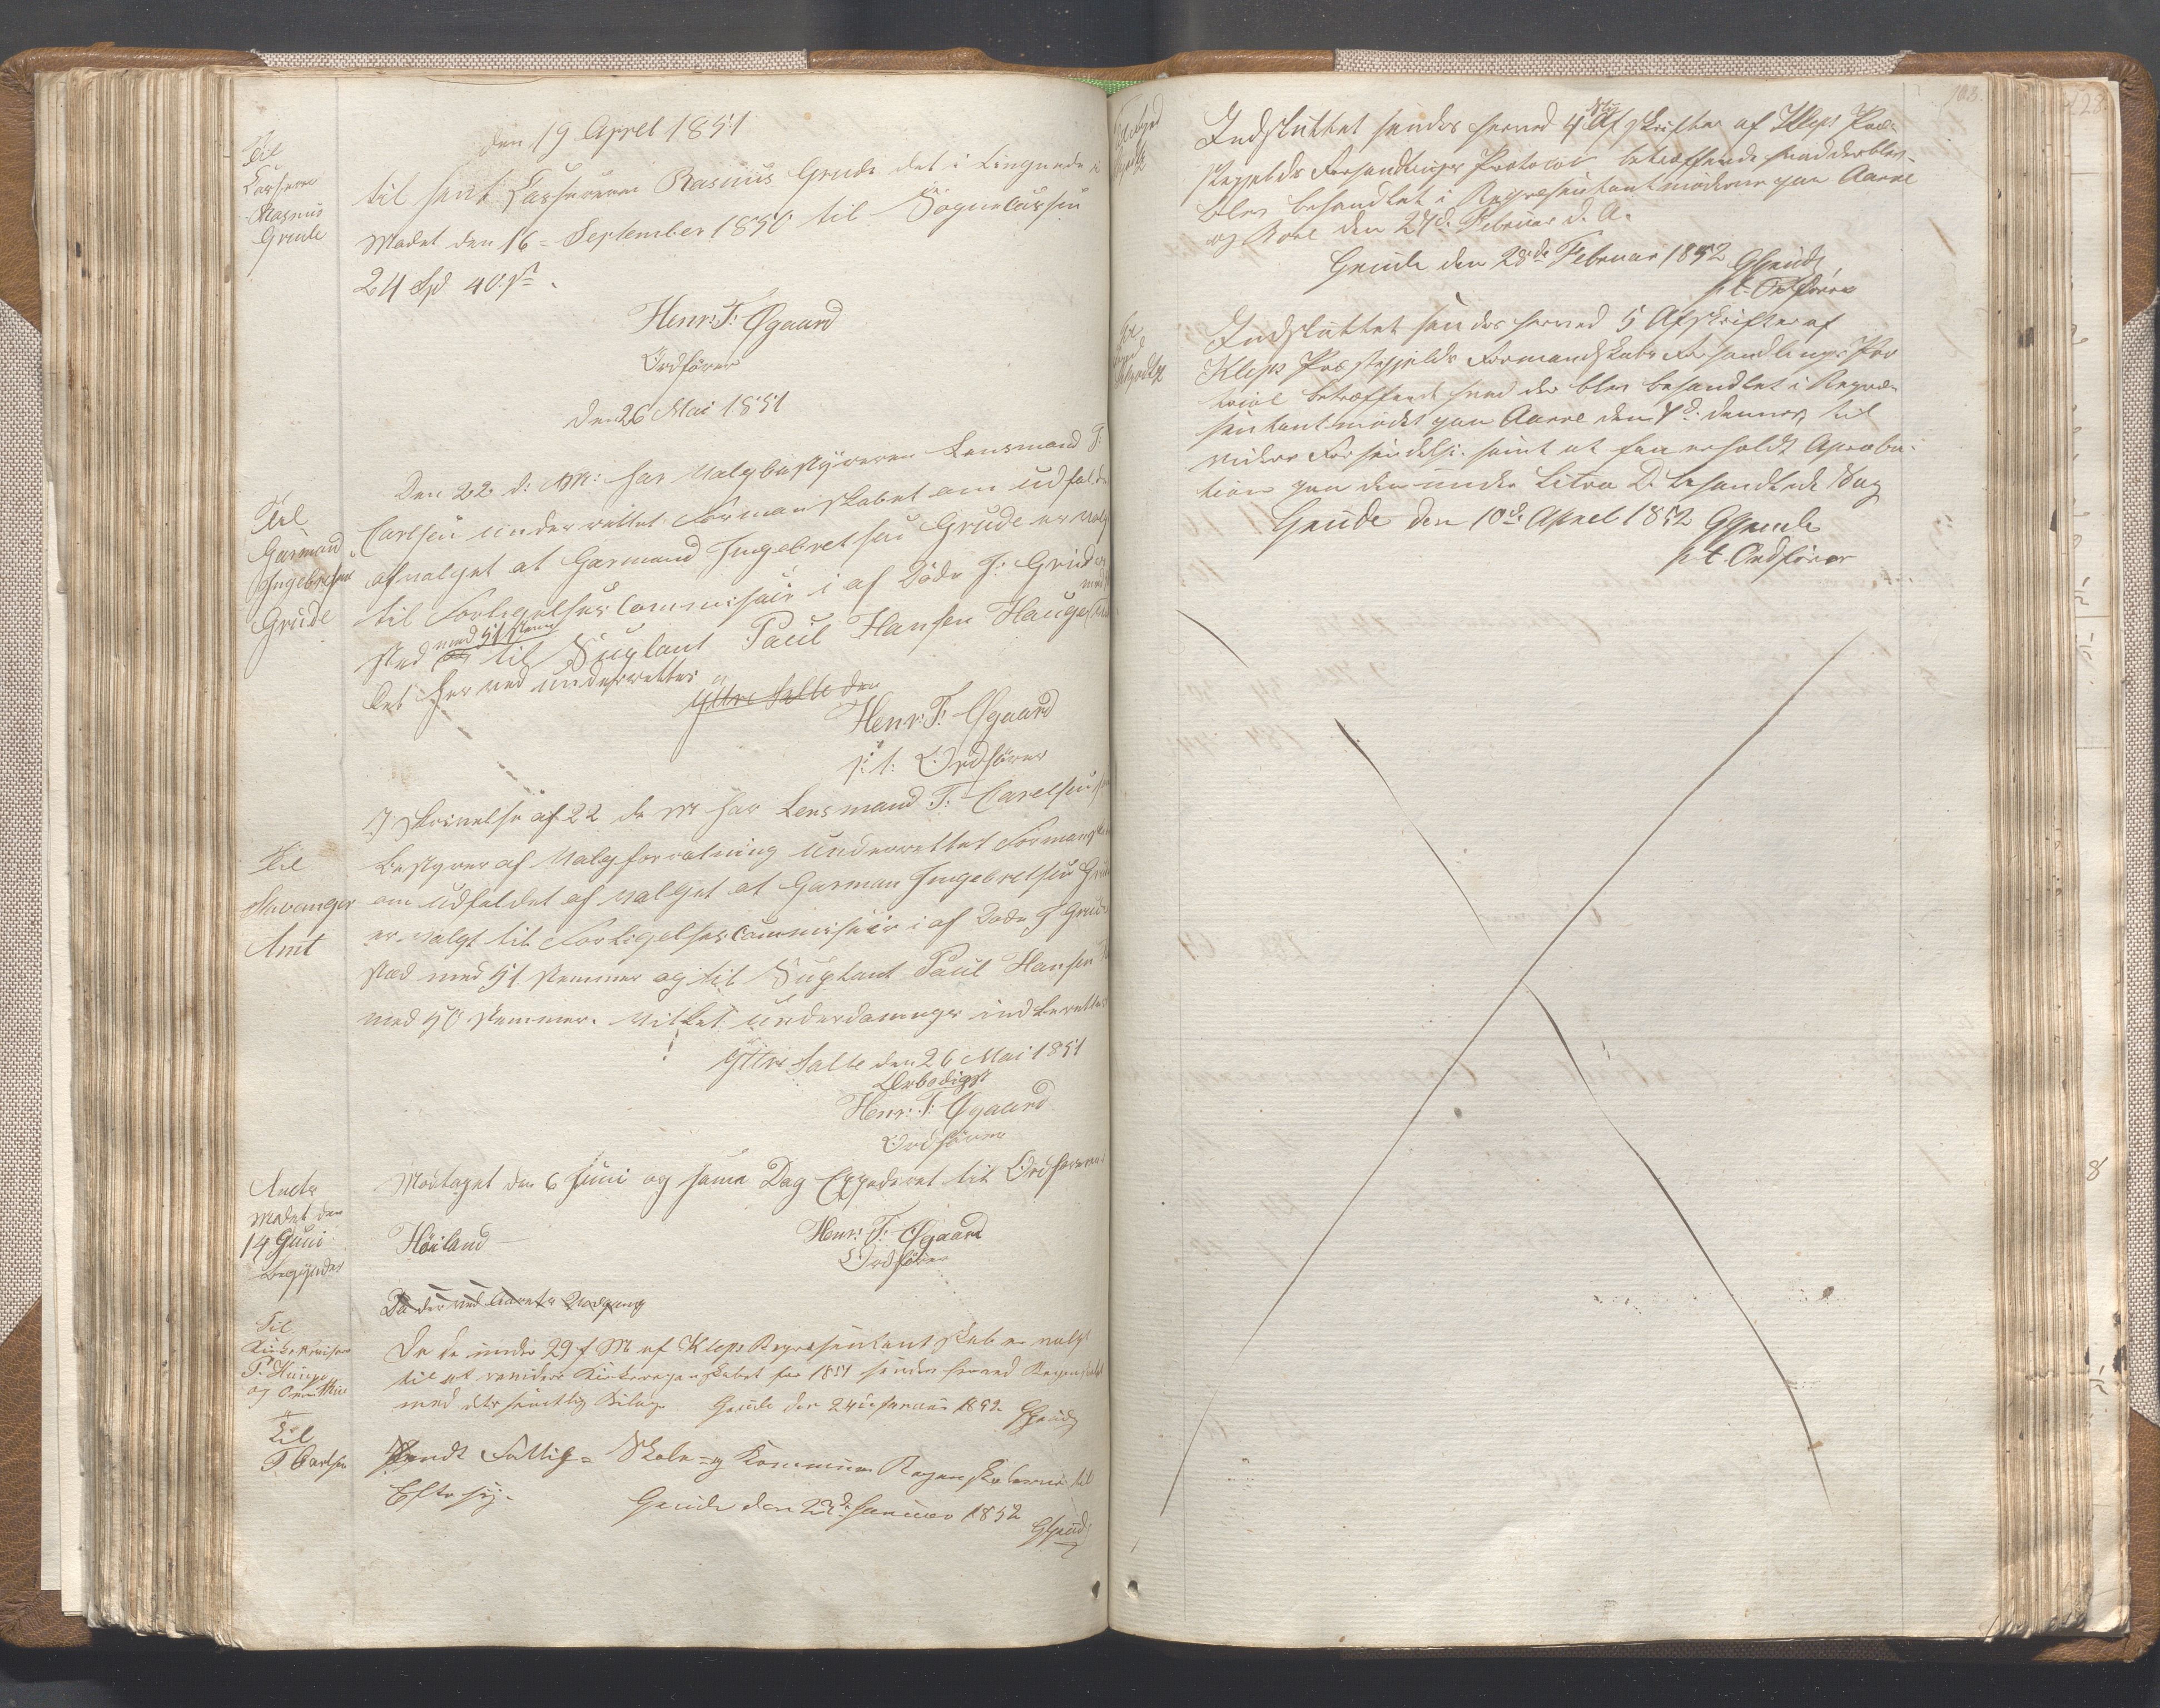 den 19 Appel 1851
Til
Casserer
Rasmus
Grude
til sent Casserern Rasmus Grude det i Lingnede i
Mødet den 16 = September 1850 til Sognecassen
24 Spd 40 s
Henr: T: Øgaard
Ordfører
Den 26 Mai 1851
Til
Garmand
Ingebretsen
Grude
Den 22 d: M: har Valgbestyreren Lensmand T:
Carlsen underrettet Formanskabet om udfaldet
af valget at Garmand Ingebretsen Grude er valgt
til Forligelses Commissair i af Døde J: Grude
sted med 51 stemer til Suplant Paul Hansen Hauge
Det her ved underrettes
Yttre Salte den
Henr: T: Øgaard
p: t: Ordfører
Til
Stavanger
Amt
I Skrivelse af 22 de M har Lensmand T: Carelsen som
bestyrer af Valgforretning underrettet Formanskabet
om udfaldet af valget at Garman Ingebretsen Grude
er valgt til Forligelses Commissair i af Døde J Grude
sted med 51 stemmer og til Suplant Paul Hansen
med 50 stemmer. Vilket underdanigs indberettes
Yttre Salte den 26 Mai 1851
Ærbødigst
Henr: T: Øgaard
Ordfører
Modtaget den 6 Juni og samme Dag Expederet til Ordføreren
Mødet den
14 Juni
begyndes
Høiland
Henr: T: Øgaard
Ordfører
Da der ved Aarets Udgang
Til
T. Hauge
og
De de under 29 f M af Kleps Representantskab er valgt
til at revidere Kirkeregnskabet for 1851 sendes herved Regnskabet
med dets samtlig Bilage Grude den 24 Januari 1852 GGrude
Til
T Carlsen
Sendt Fattig = Skole = og Kommune Regenskaberne til
Eftersyn. Grude den 23d Januar 1852
GGrude
103.
Indsluttet sendes herved 4 Afskrifter af Kleps Præ-
stegjelds Forhandlings Protocol betreffende hvad der blev
blev behandlet i Representantmøderne paa Aarre
og Bore den 27d Februar d. A.
Grude den 28de Februar 1852 GGrude
p. t. Ordfører
Indsluttet sendes herved 5 Afskrifter af
Kleps Præstegjelds Formandskabs Forhandlings Pro
tocol betreffende hvad der blev behandlet i Repræ-
sentantmødet paa Aarre den 7d: dennes, til
videre Forsendelse samt at faa erholdt Aproba-
tion paa den under Litra D. behandlede Sag
Grude den 10de Aprel 1852 GGrude
p. t. Ordfører